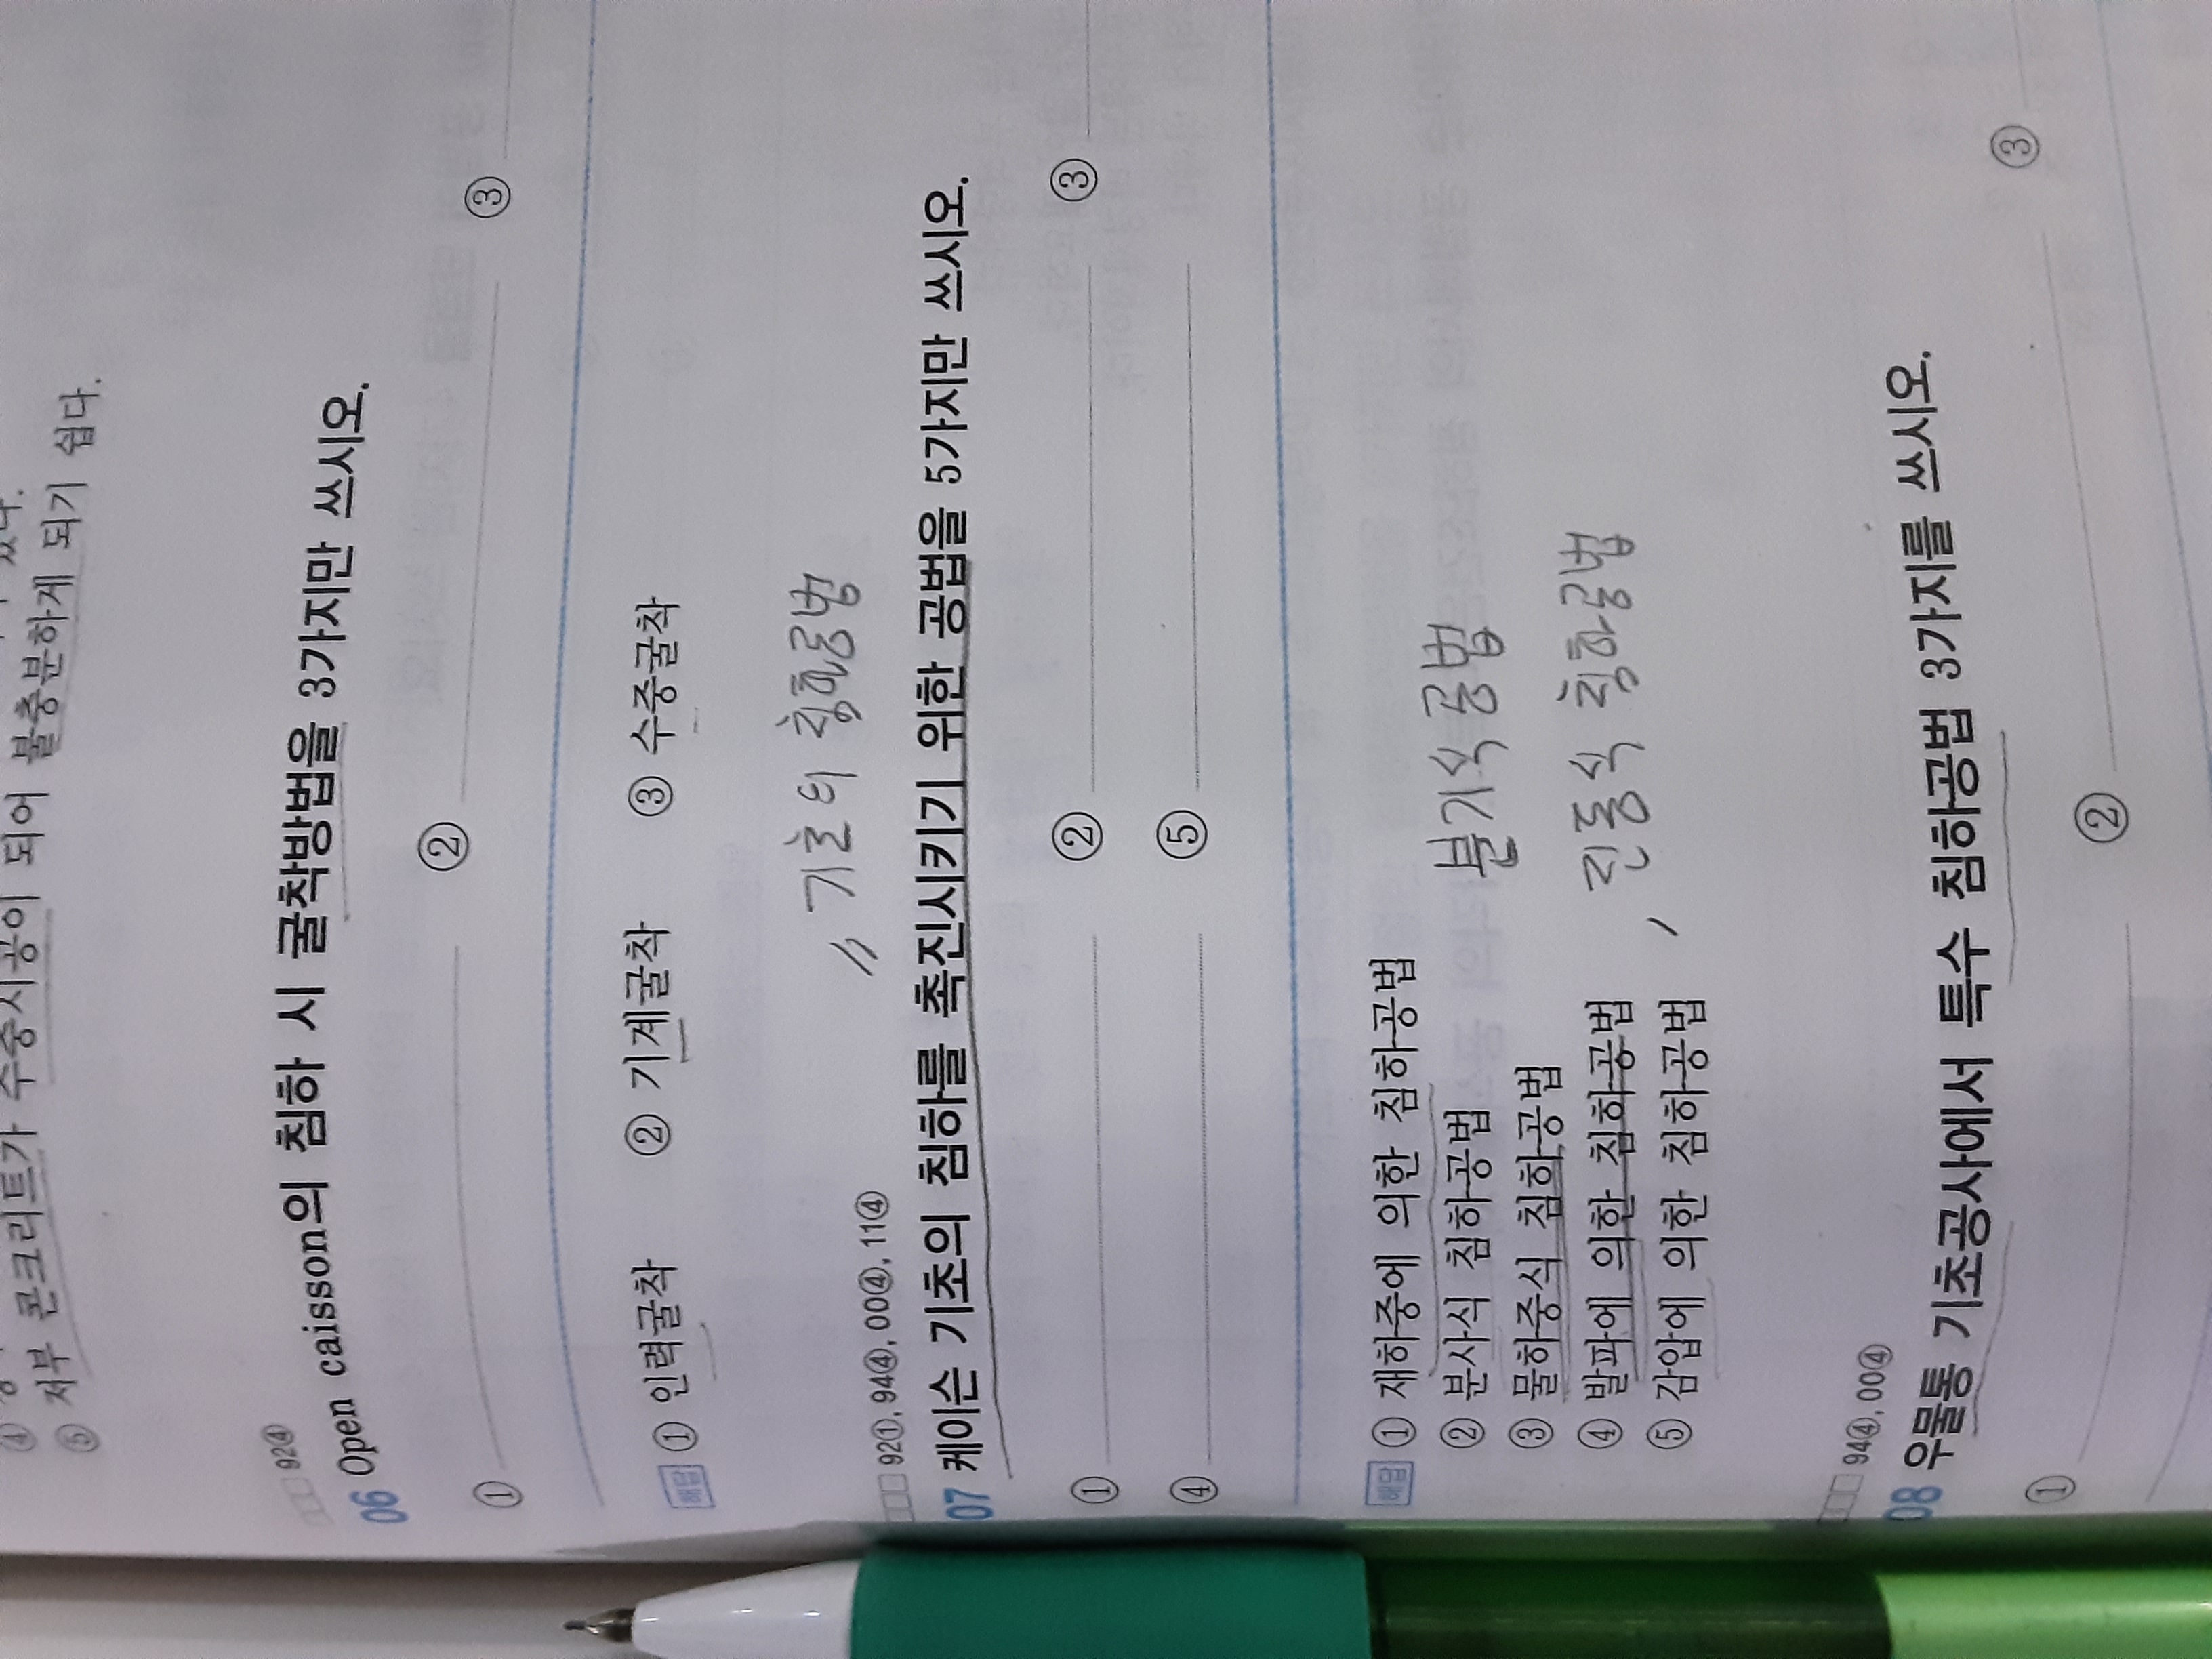 콘크리트가 수중시공이 되어 불충분하게 되기 쉽다.
⑤ 저부
92④
06 Open caisson의 침하 시 굴착방법을 3가지만 쓰시오.
① ② ③
해답 ① 인력굴착 ② 기계굴착 ③ 수중굴착
〃 기초의 침하공법
92①, 94④, 00④, 11④
07 케이슨 기초의 침하를 촉진시키기 위한 공법을 5가지만 쓰시오.
① ② ③
④ ⑤
해답 ① 재하중에 의한 침하공법
② 분사식 침하공법 분기식 공법
③ 물하중식 침하공법
④ 발파에 의한 침하공법, 진동식 침하공법
⑤ 감압에 의한 침하공법
94④, 00④
08 우물통 기초공사에서 특수 침하공법 3가지를 쓰시오.
① ② ③